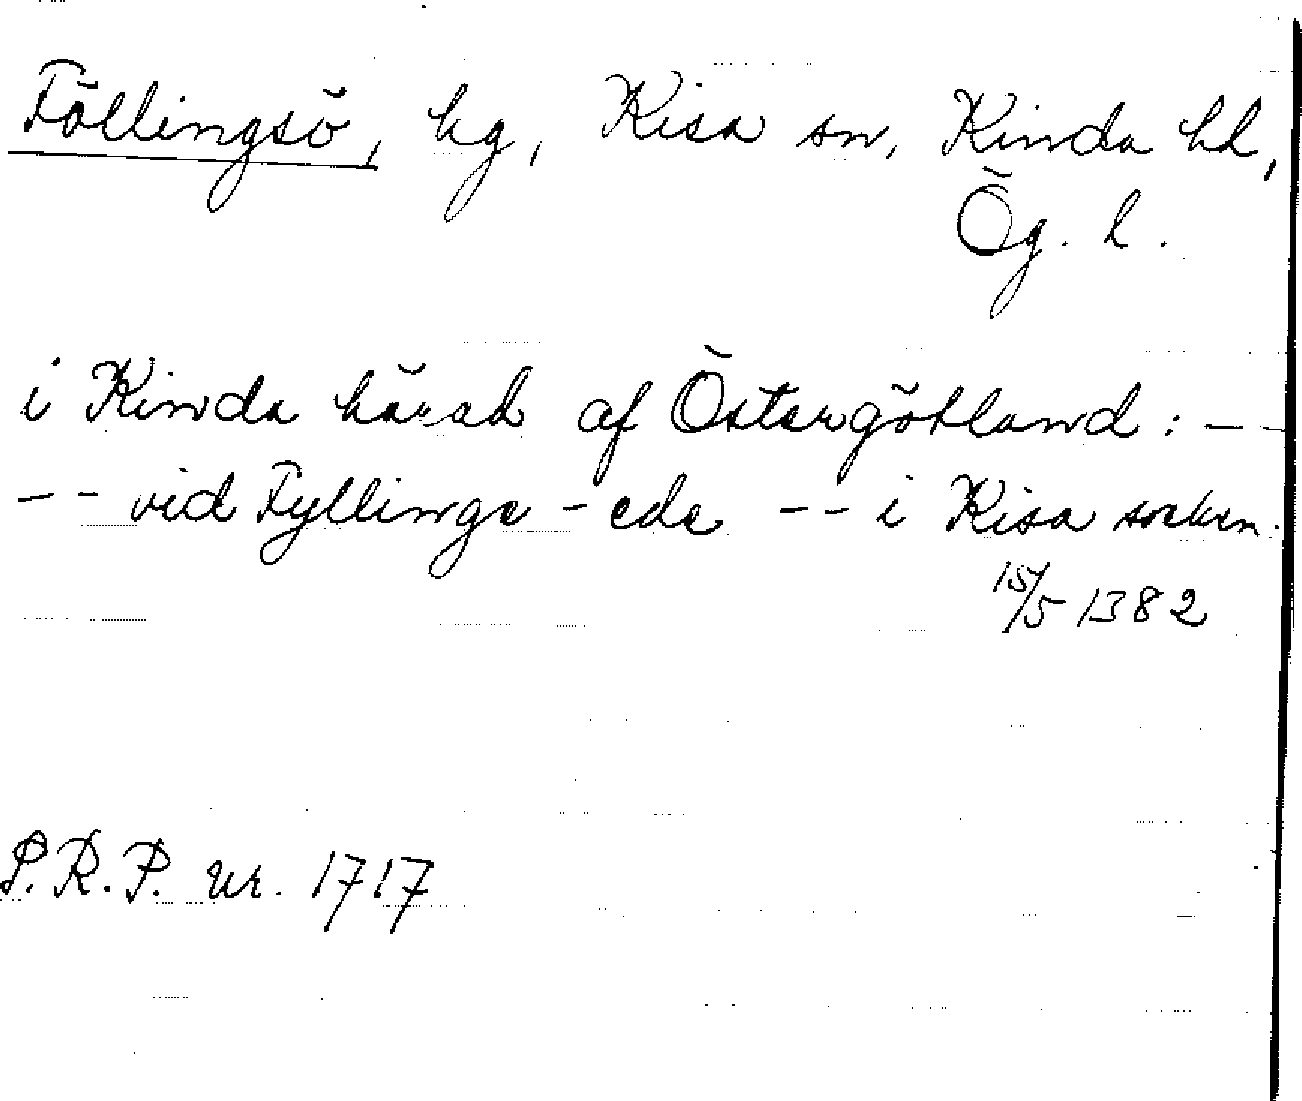 Föllingsö, hg, Kisa sn, Kinda hd,
Ög. l.
i Kinda härad af Östergötland: --
-- vid Fyllinge-ede -- i Kisa socken.
15/5 1382
S.R.P. nr. 1717